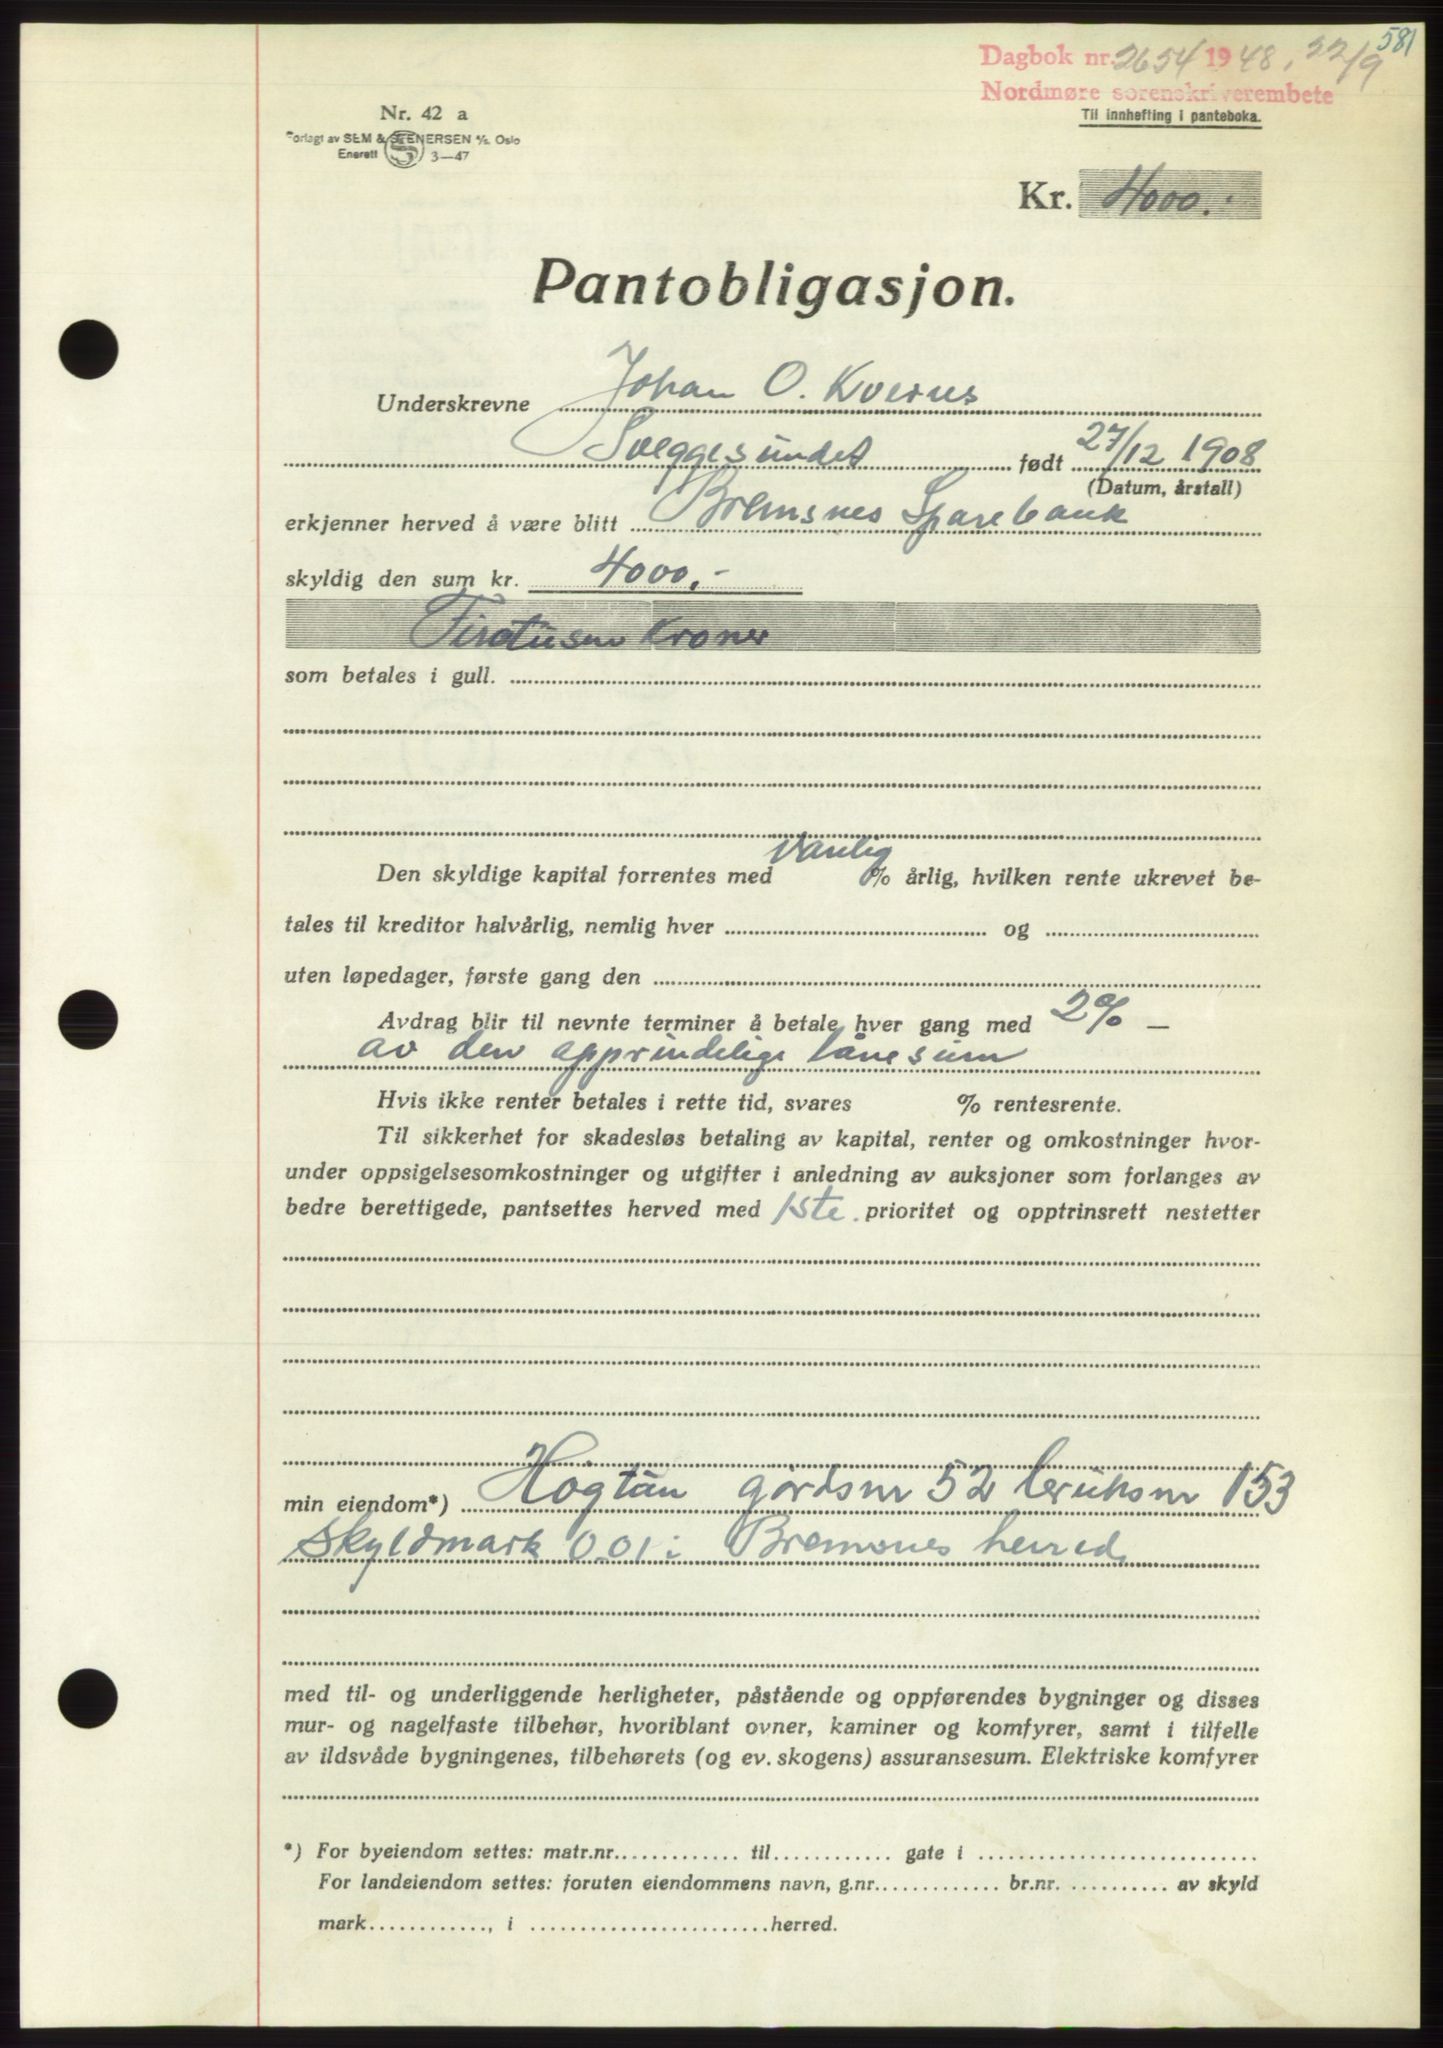 581
Dagbok nr. 2654 1948. 22/9
Nordmøre sorenskriverembete
Til innhefting i panteboka.
Nr. 42 a
Forlagt av SEM & STENERSEN A/S. Oslo
Enerett 3—47
Kr. 4000.-
Pantobligasjon.
Underskrevne Johan O. Kvernes
Sveggesundet født 27/12 1908
(Datum, årstall)
erkjenner herved å være blitt Bremsnes Sparebank
skyldig den sum kr. 4000,-
Firetusen Kroner
som betales i gull.
Den skyldige kapital forrentes med vanlig % årlig, hvilken rente ukrevet be-
tales til kreditor halvårlig, nemlig hver og
uten løpedager, første gang den
Avdrag blir til nevnte terminer å betale hver gang med 2% —
av den opprindelige lånesum
Hvis ikke renter betales i rette tid, svares % rentesrente.
Til sikkerhet for skadesløs betaling av kapital, renter og omkostninger hvor-
under oppsigelsesomkostninger og utgifter i anledning av auksjoner som forlanges av
bedre berettigede, pantsettes herved med 1ste. prioritet og opptrinsrett nestetter
min eiendom*) Högtun gårdsnr 52 bruksnr 153
Skyldmark 0.01 i Bremsnes herred
med til- og underliggende herligheter, påstående og oppførendes bygninger og disses
mur- og nagelfaste tilbehør, hvoriblant ovner, kaminer og komfyrer, samt i tilfelle
av ildsvåde bygningenes, tilbehørets (og ev. skogens) assuransesum. Elektriske komfyrer
*) For byeiendom settes: matr.nr. til gate i
For landeiendom settes: foruten eiendommens navn, g.nr. br.nr. av skyld
mark , i herred.